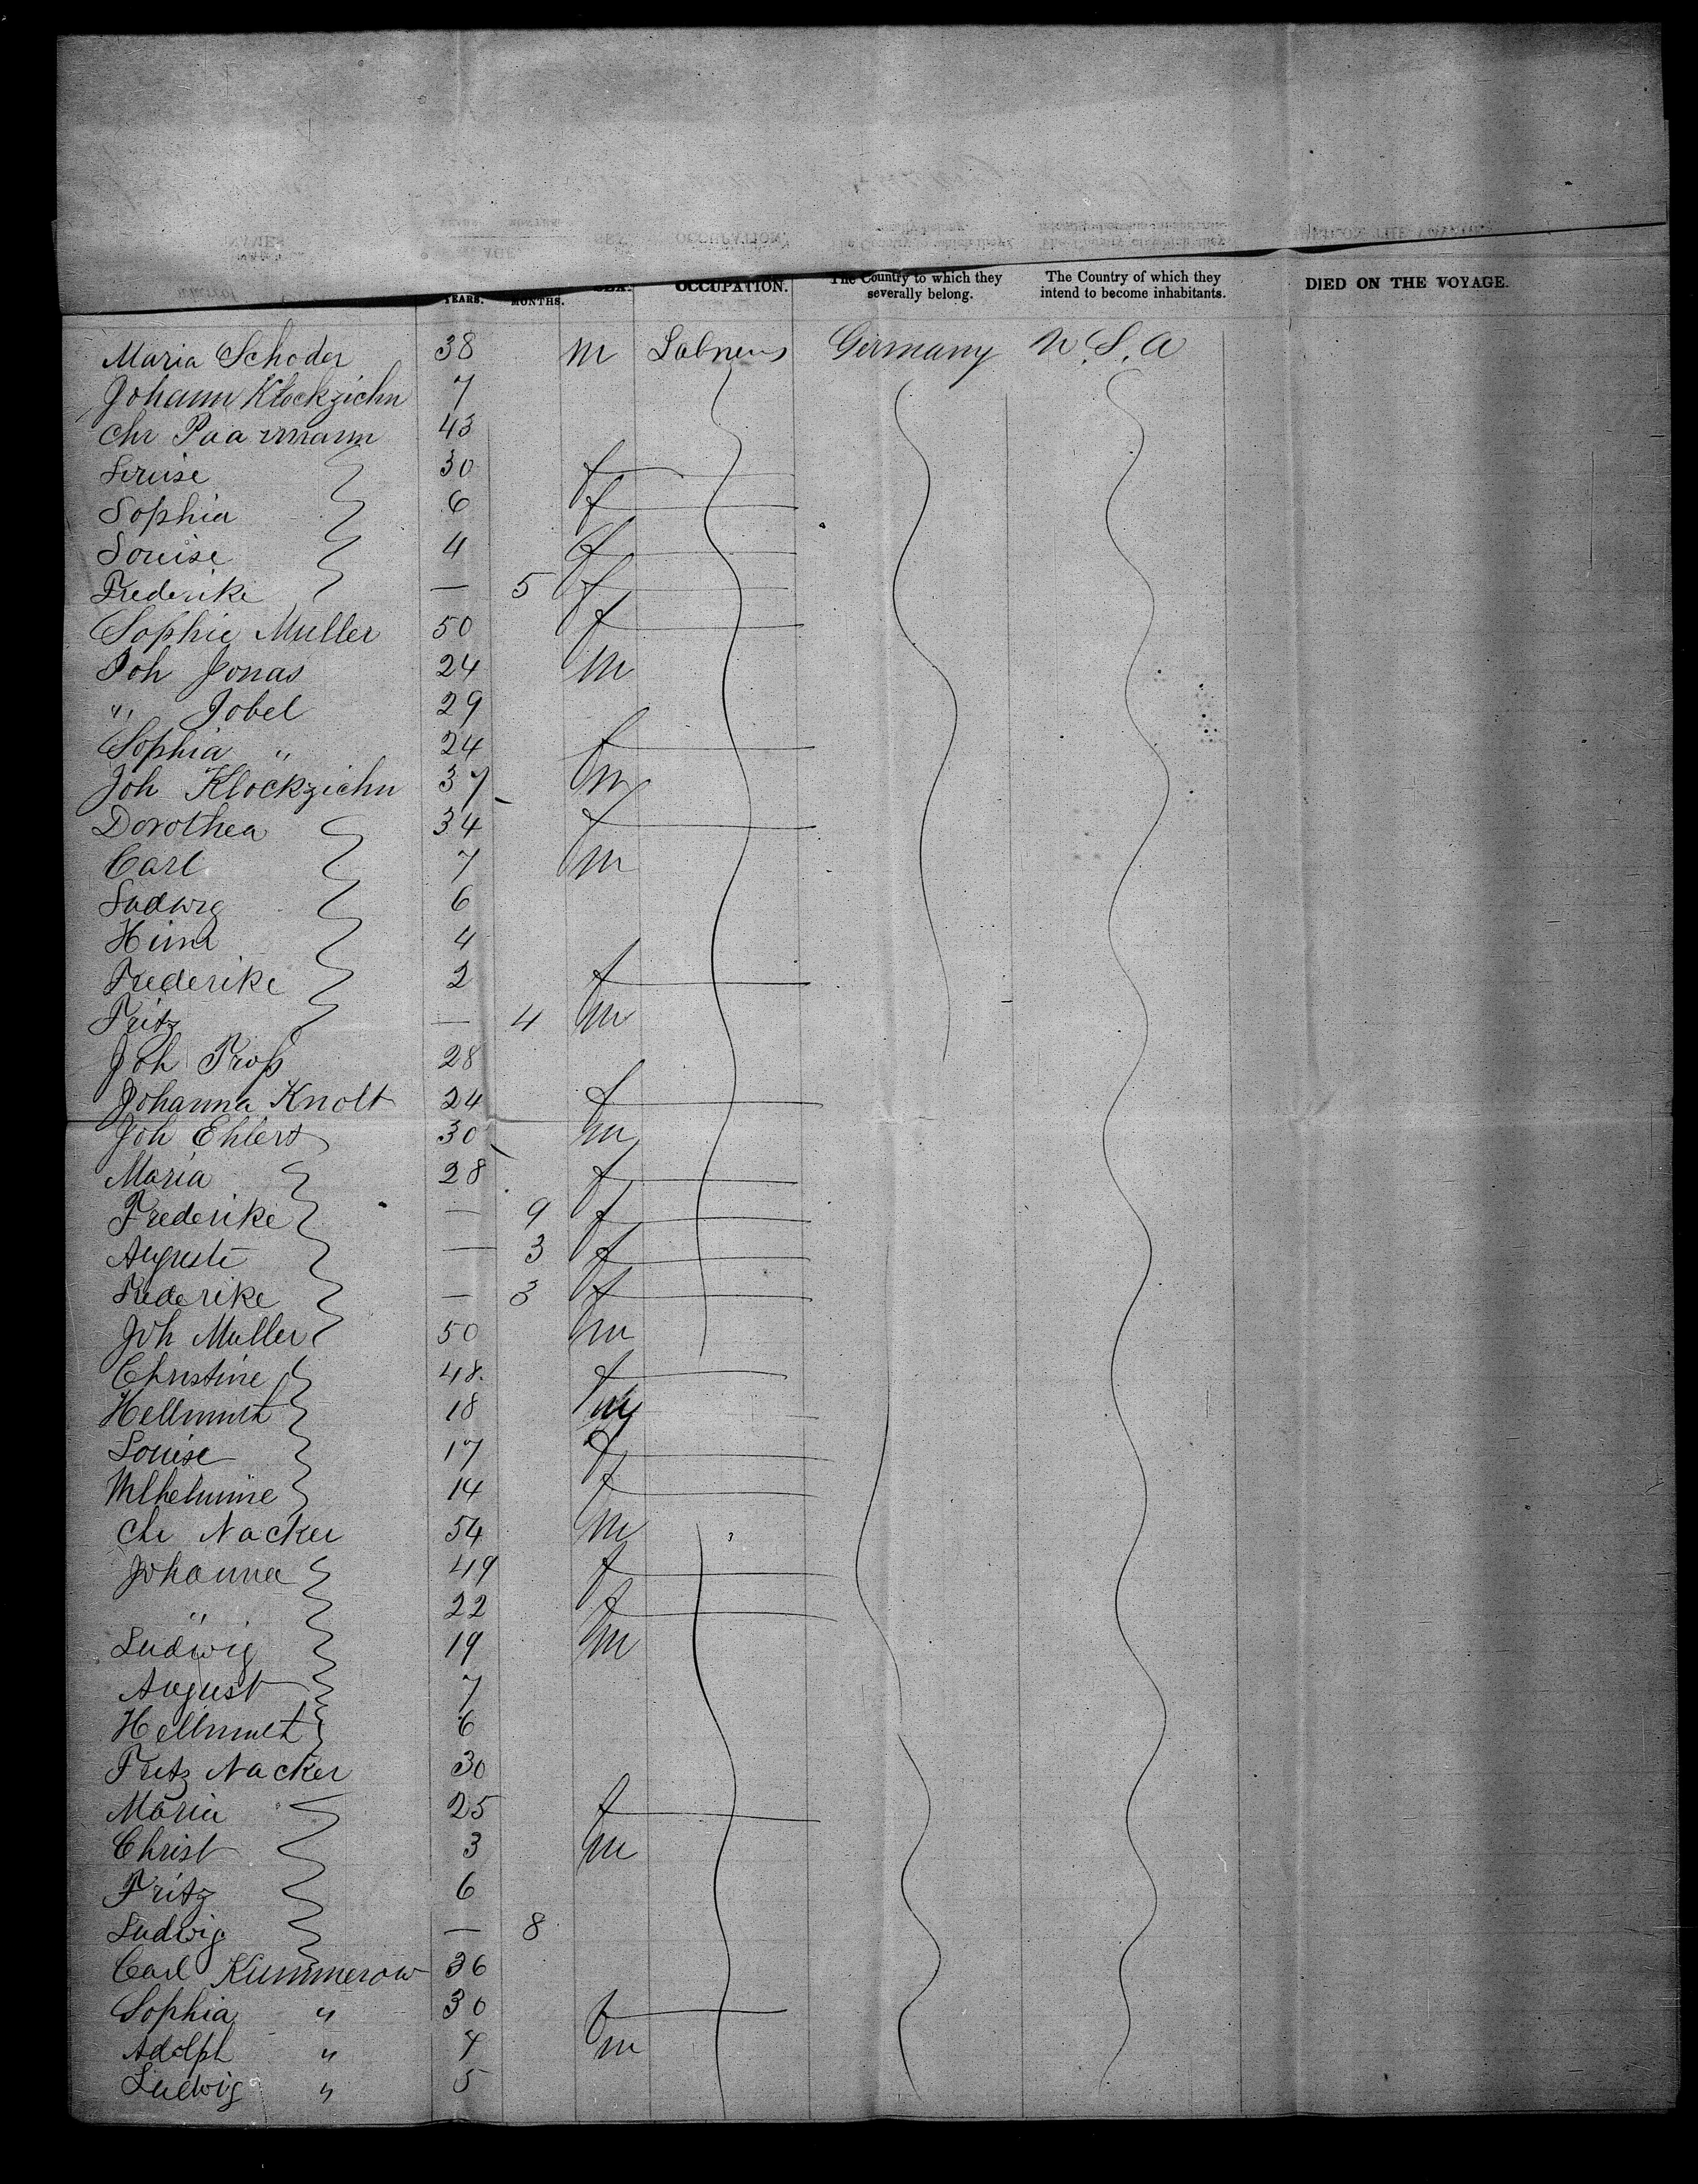 YEARS. MONTHS. SEX. OCCUPATION. The Country to which they severally belong. The Country of which they intend to become inhabitants. DIED ON THE VOYAGE.
Maria Schoder 38 m Germany U.S.A
Johann Klockziehn 7
Chr Paarmann 43
Louise 30 f
Sophia 6 f
Louise 4 f
Frederike — 5 f
Sophie Muller 50 f
Joh Jonas 24 m
" Jobel 29
Sophia " 24 f
Joh Klockziehn 37 m
Dorothea 34 f
Carl 7 m
Ludwig 6
Heinr 4
Frederike 2 f
Fritz — 4 m
Joh 28
Johanna Knolt 24 f
Joh Ehlers 30 m
Maria 28 f
Frederike — 9 f
Auguste — 3 f
Frederike — 3 f
Joh Muller 50 m
Christine 48. f
Hellmuth 18 m
Louise 17 f
Wilhelmine 14 f
Chr Nacker 54 m
Johanna 49 f
" 22 f
Ludwig 19 m
August 7
Hellmuth 6
Fritz Nacker 30
Maria 25 f
Christ 3 m
Fritz 6
Ludwig — 8
Carl Kummerow 36
Sophia " 30 f
Adolph " 7 m
Ludwig " 5